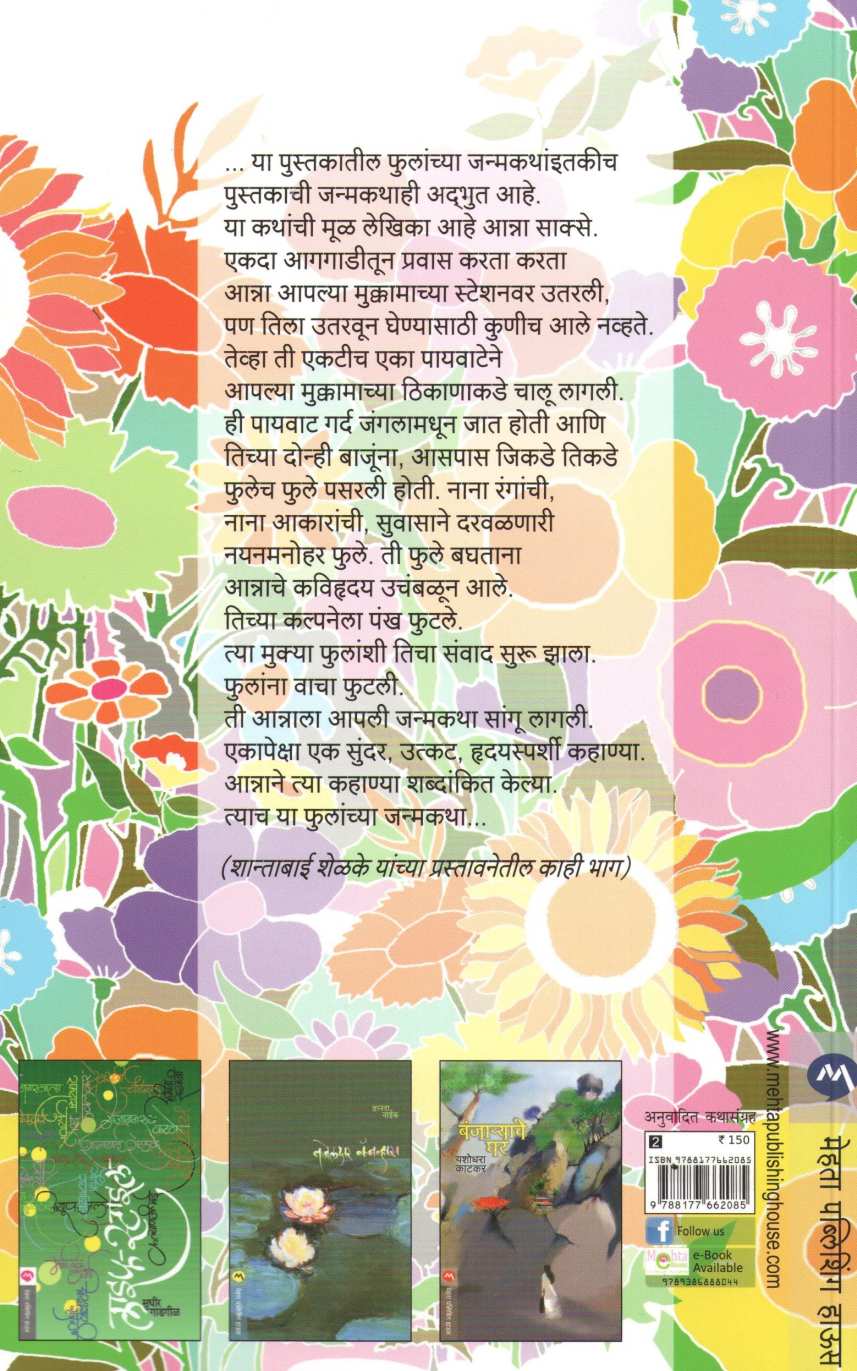 ... या पुस्तकातील फुलांच्या जन्मकथांइतकीच
पुस्तकाची जन्मकथाही अद्‌भुत आहे.
या कथांची मूळ लेखिका आहे आन्ना साक्से.
एकदा आगगाडीतून प्रवास करता करता
आन्ना आपल्या मुक्कामाच्या स्टेशनवर उतरली,
पण तिला उतरवून घेण्यासाठी कुणीच आले नव्हते.
तेव्हा ती एकटीच एका पायवाटेने
आपल्या मुक्कामाच्या ठिकाणाकडे चालू लागली.
ही पायवाट गर्द जंगलामधून जात होती आणि
तिच्या दोन्ही बाजूंना, आसपास जिकडे तिकडे
फुलेच फुले पसरली होती. नाना रंगांची,
नाना आकारांची, सुवासाने दरवळणारी
नयनमनोहर फुले. ती फुले बघताना
आन्नाचे कविहृदय उचंबळून आले.
तिच्या कल्पनेला पंख फुटले.
त्या मुक्या फुलांशी तिचा संवाद सुरू झाला.
फुलांना वाचा फुटली.
ती आन्नाला आपली जन्मकथा सांगू लागली.
एकापेक्षा एक सुंदर, उत्कट, हृदयस्पर्शी कहाण्या.
आन्नाने त्या कहाण्या शब्दांकित केल्या.
त्याच या फुलांच्या जन्मकथा...
(शान्ताबाई शेळके यांच्या प्रस्तावनेतील काही भाग)
लाइफ-स्टाइल
सुधीर
गाडगीळ
बंजाऱ्याचे
घर
यशोधरा
काटकर
अनुवादित कथासंग्रह
2
₹ 150
ISBN 9788177662085
9 788177 662085
Follow us
Mehta
e-Book
Available
9789386888044
www.mehtapublishinghouse.com
मेहता पब्लिशिंग हाऊस